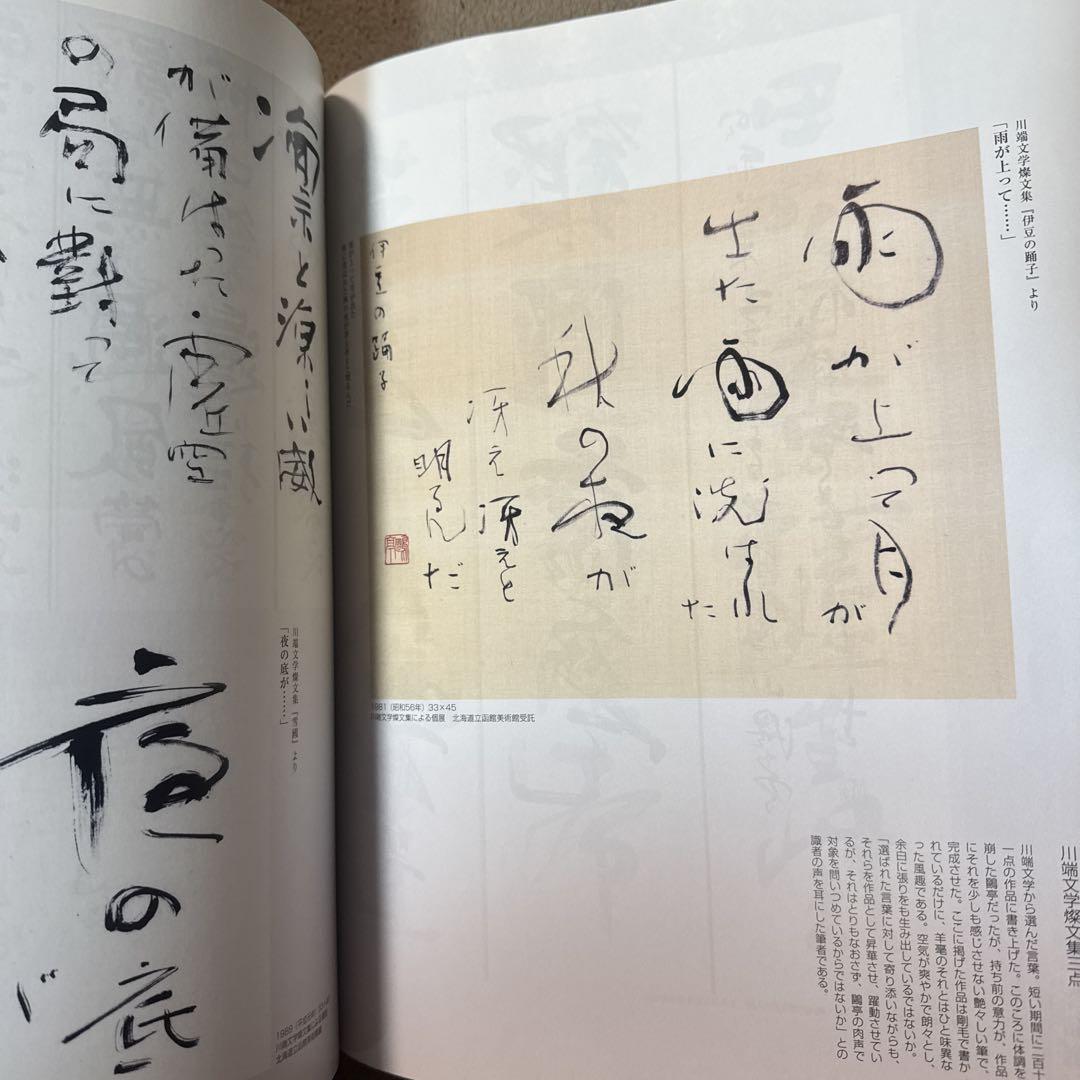 川端文学燦文集『伊豆の踊子』より
「雨が上って……」
雨が上って月が
出た雨に洗はれた
秋の夜が
冴え冴えと
明るんだ
伊豆の踊子
1981（昭和56年）33×45
川端文学燦文集による個展　北海道立函館美術館受託
川端文学燦文集三点
川端文学から選んだ言葉。短い期間に二百十
一点の作品に書き上げた。このころに体調を
崩した鷗亭だったが、持ち前の意力が、作品
にそれを少しも感じさせない艶々しい筆で、
完成させた。ここに掲げた作品は剛毛で書か
れているだけに、羊毫のそれとはひと味異な
った風趣である。空気が爽やかで朗々とし、
余白に張りをも生み出しているではないか。
「選ばれた言葉に対して寄り添いながらも、
それらを作品として昇華させ、躍動させてい
るが、それはとりもなおさず、鷗亭の肉声で
対象を問いつめているからではないか」との
識者の声を耳にした筆者である。
が備はつて虚空
の局に對って
川端文学燦文集『雪國』より
「夜の底が……」
夜の底
が